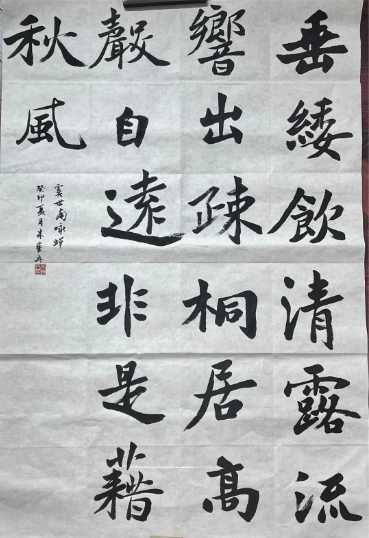 垂緌飲清露流
響出疎桐居高
聲自遠非是藉
秋風
虞世南咏蟬
癸卯夏月朱